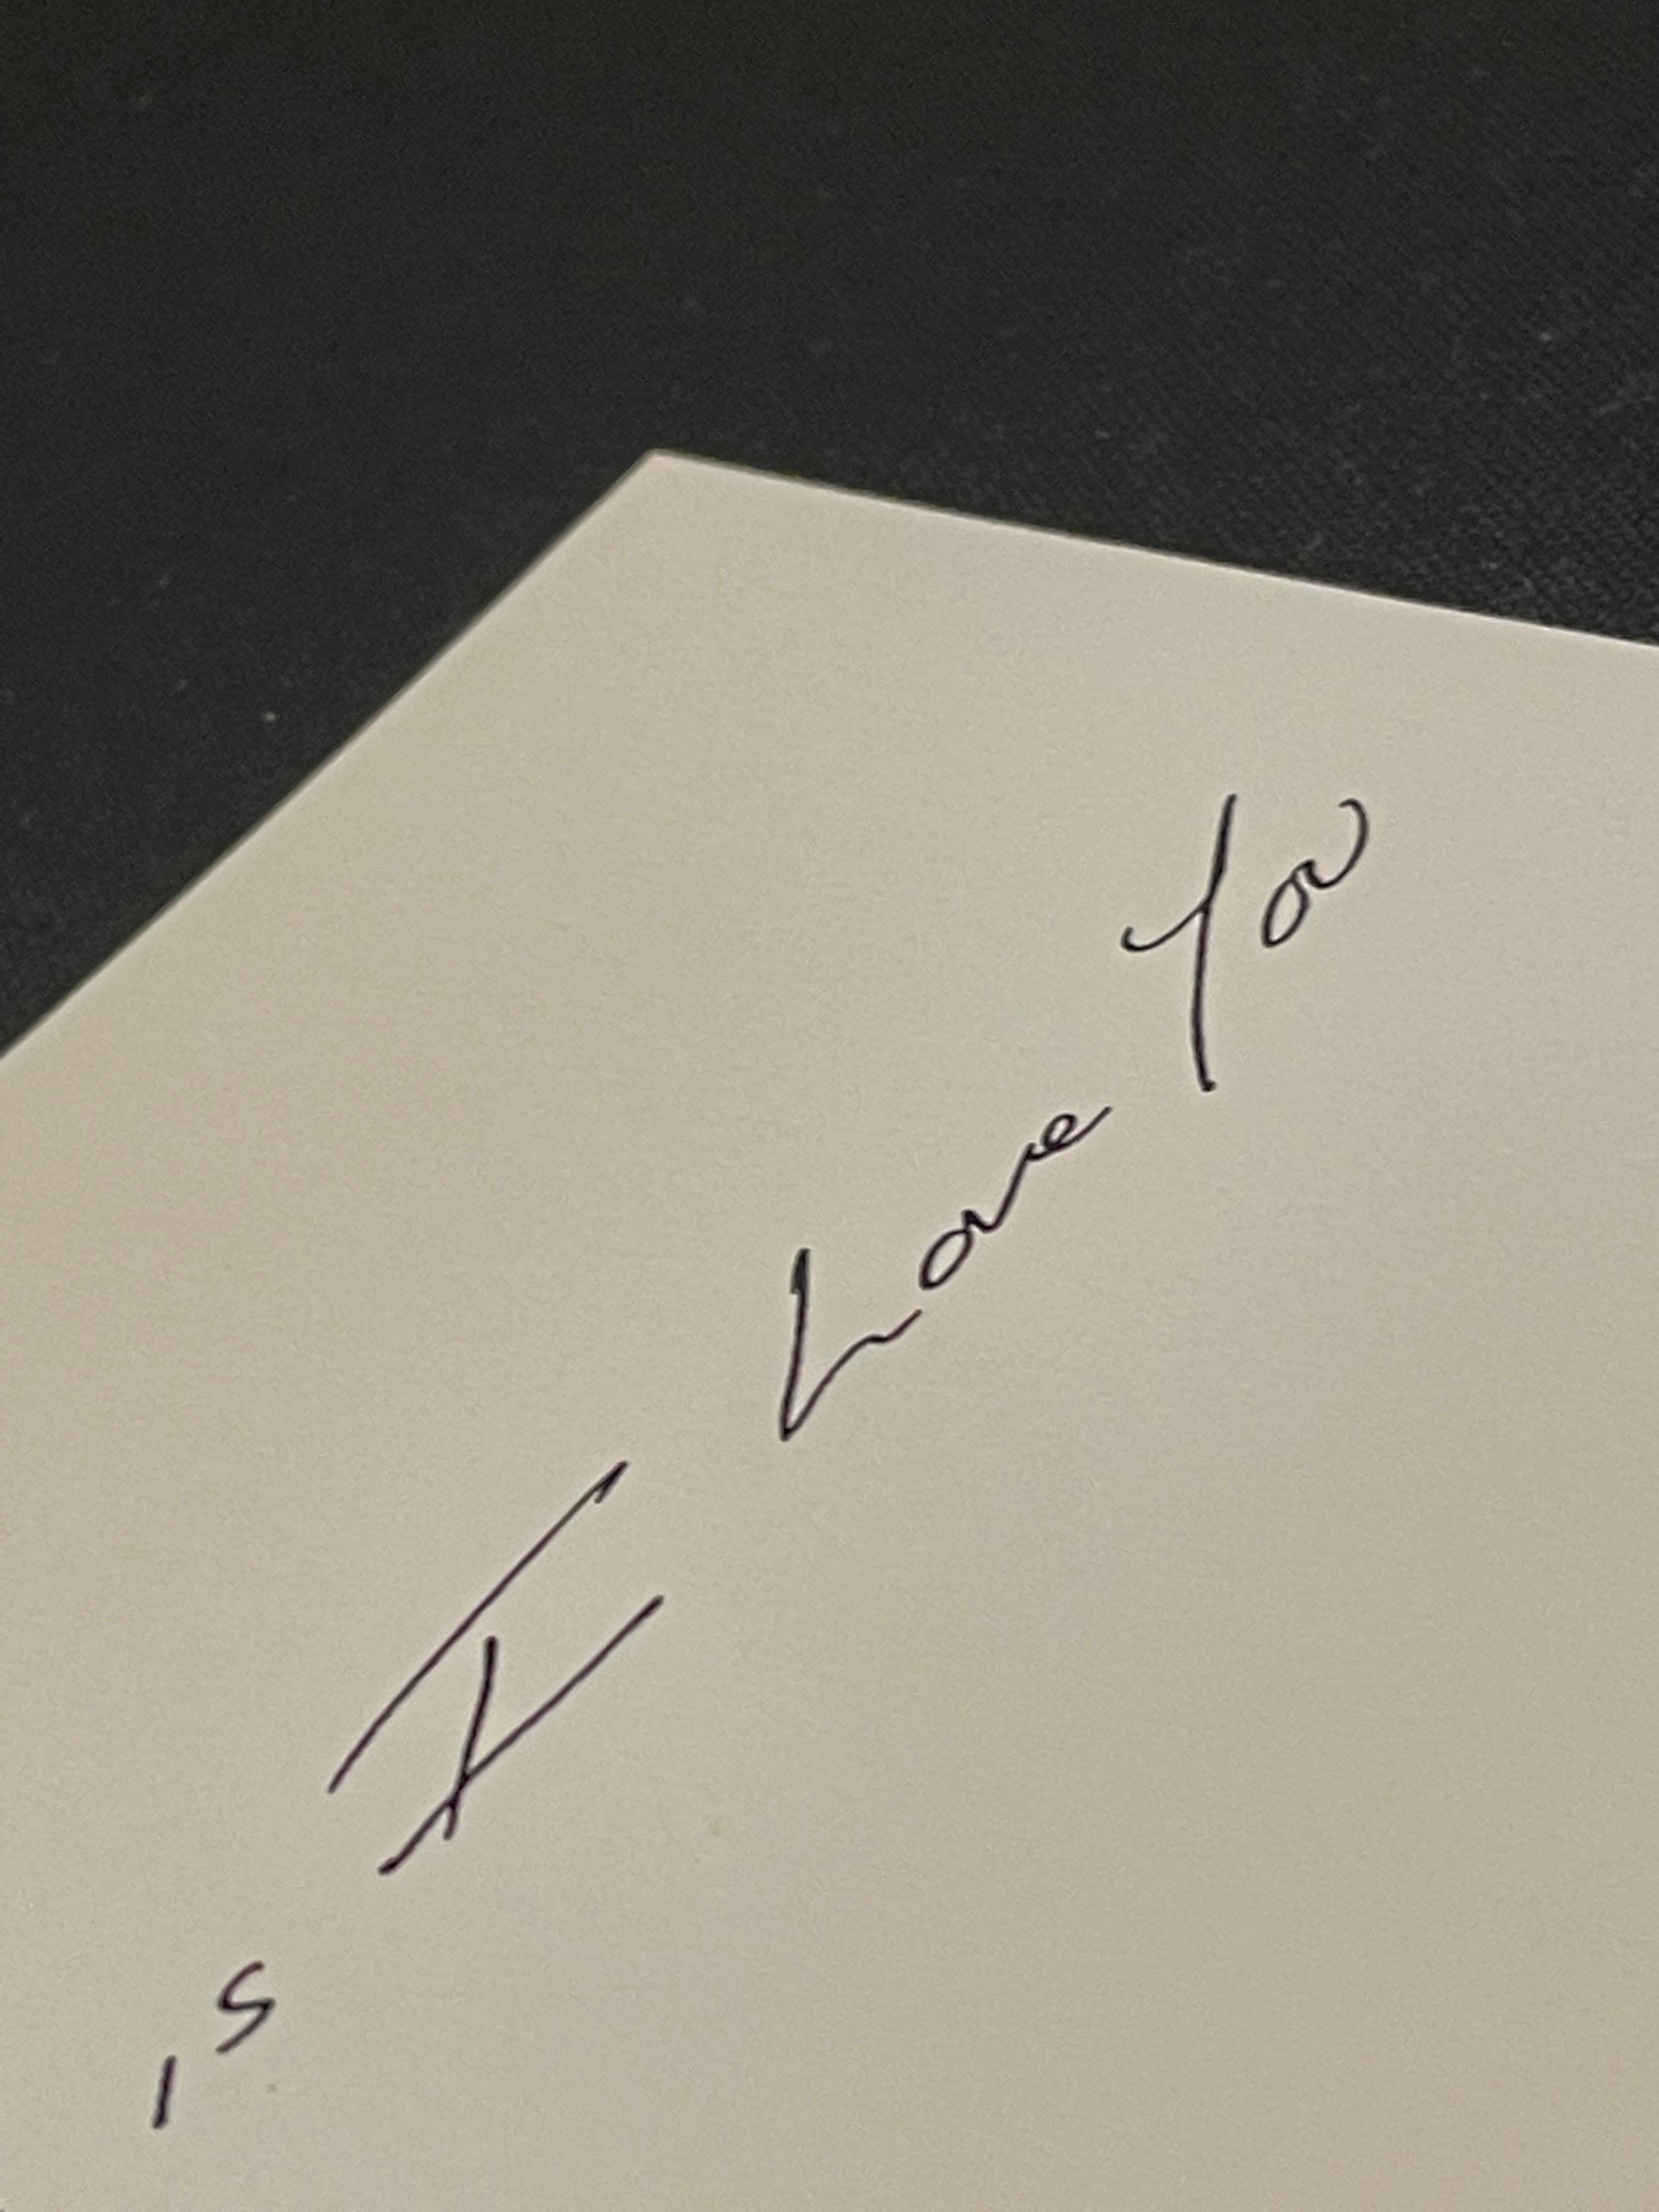 is I Love You